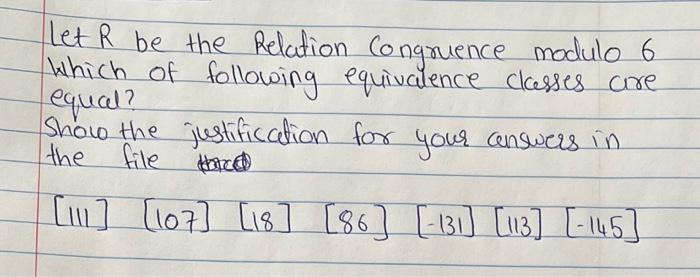 Let R be the Relation Congruence modulo 6
Which of following equivalence classes are
equal?
Show the justification for your answers in
the file
[111] [107] [18] [86] [-131] [113] [-145]